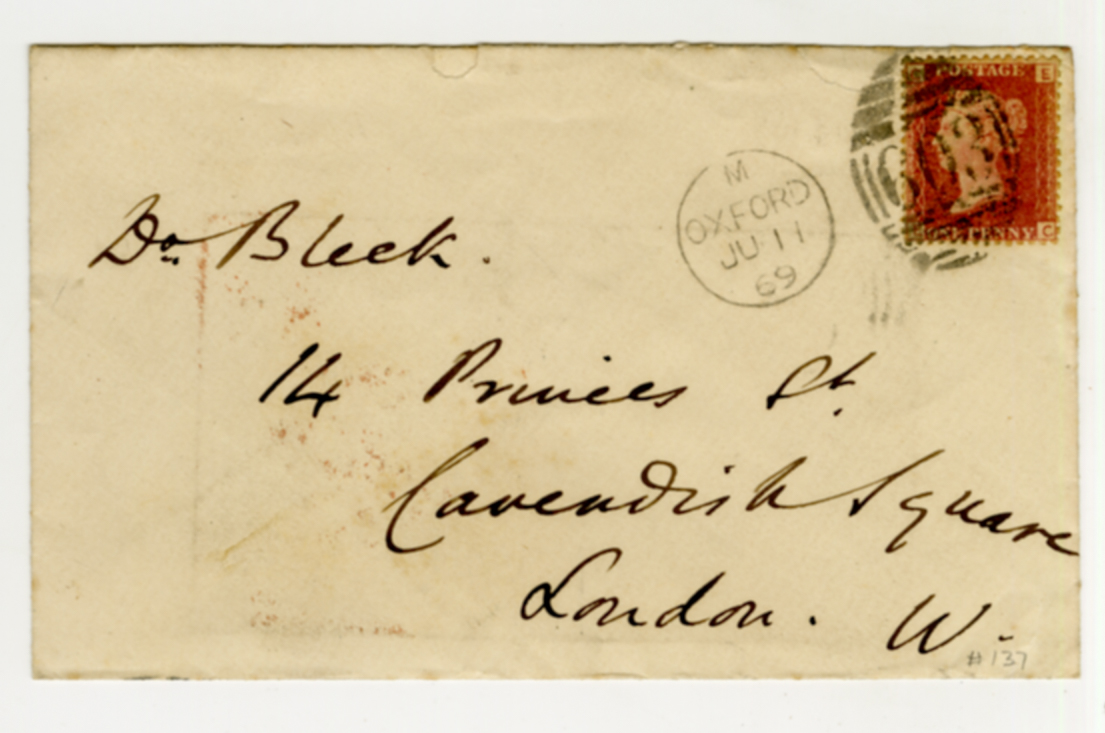 POSTAGE E
603
PENNY C
M
OXFORD
JU 11
69
Dr. Bleek.
14 Princes St.
Cavendish Square
London. W.
#137